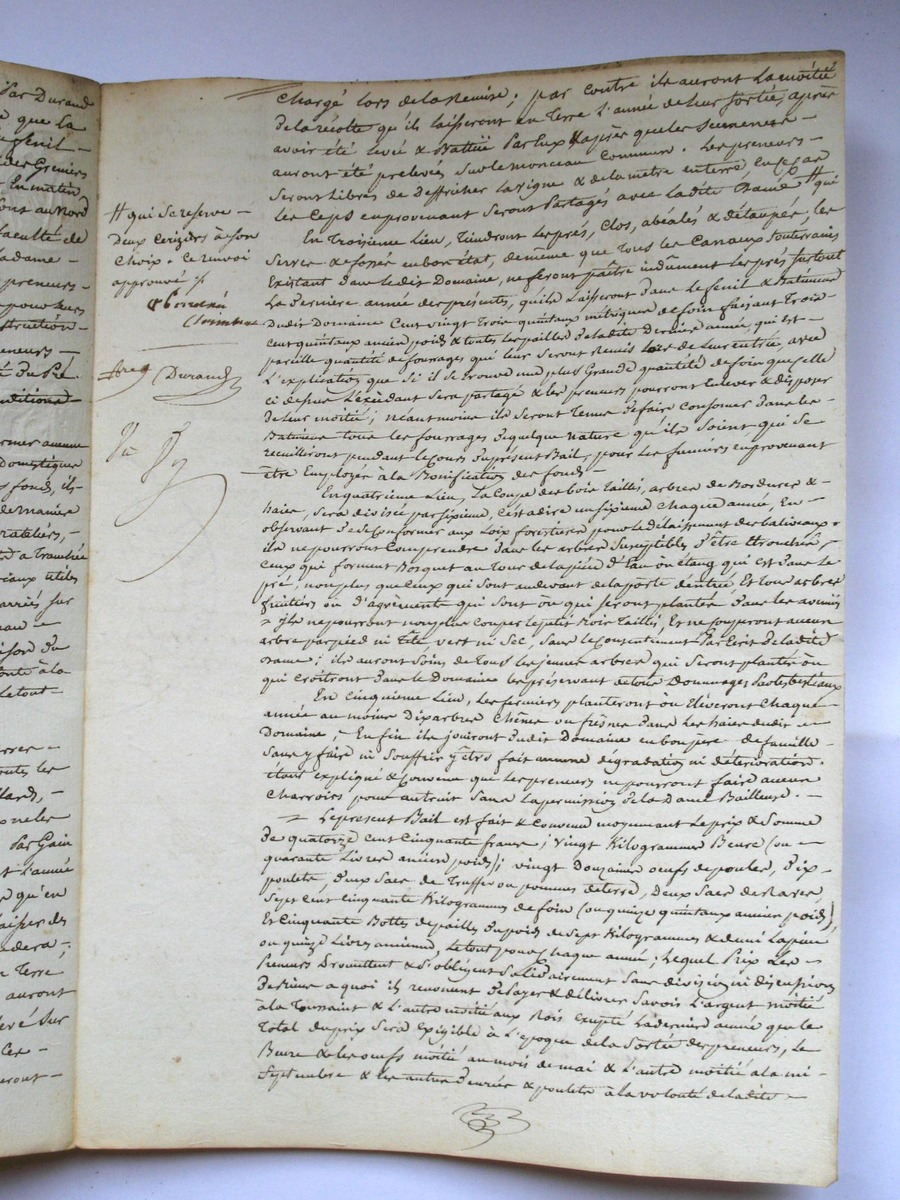 Par Durand
que la
fenil -
des Greniers
En matin
au Nord
faculté de
Madame -
preneurs -
pour leurs
preneurs -
aucune
Domestique
fond, ils
de manière
rateliers, -
a Tranchée
utiles
sur
Letout
les
Par Gain
L'année
qu'en
Terre
auront
sur
Ces -
# qui Se reserve -
Deux Cerisiers à Son
Choix . Ce renvoi
approuvé
Durand
chargé lors de la Remise ; par contre ils auront La moitié
de la récolte qu'ils laisseront en Terre L'année de leur Sortie, après
avoir été levé & Battüe Par Eux & après que les Semences -
auront été prelevés Sur le monceau Commun . Les preneurs -
Seront Libres de deffricher La vigne & de la mettre enterre
les Ceps en provenant Seront Partagés avec Ladite Dame # qui
En Troisieme Lieu, Tiendront Les prés, Clos, abéalés & détaupés, les
Serves & fossés en bon état, de même que Tous les Canaux Souterrains
Existant dans le dit Domaine, ne feront paître indûment Les prés Surtout
La derniere année des présentes, qu'ils Laisseront dans le fenil & Batiment
Dudit Domaine Cent vingt Trois quintaux métriques de foin faisant Trois
Cent quintaux ancien poids & toutes les pailles de ladite Derniere année, qui est
pareille quantité de fourrages qui leur Seront Remis Lors de leur entrée, avec
L'explication que Si il Se trouve une plus Grande quantité de foin que celle
ci dessus L'excédant Sera partagé & les preneurs pourront Enlever & disposer
de Leur moitié ; néantmoins ils Seront Tenus de faire Consomer dans les
Batimens tous les fourrages de quelque nature qu'ils Soint qui Se
recueilliront pendant le Cours du présent Bail, pour les fumiers en provenant
être Employés à la Bonification des fonds -
En quatrieme Lieu, La Coupe des bois Taillis, arbres de Bordures & -
haies, Sera divisée par Sixieme, C'est à dire un Sixieme chaque année, En -
observant de Se Conformer aux Loix forestieres pour le délaissement des baliveaux .
ils ne pourront Comprendre dans les arbres Suseptibles d'être Etronchés,
Ceux qui forment Bosquet au Tour de la pièce d'Eau ou étang qui est dans le
pré, non plus que Ceux qui Sont audevant de la porte d'entrée, Et tous arbres
fruitiers ou d'agréments qui Sont ou qui Seront plantés dans les avenues
ils ne pourront non plus Couper les petits Bois Taillis, Et ne Couperont aucun
arbre par pied ni Tête, vert ni Sec, Sans le Consentement Par Ecrit de ladite
Dame ; ils auront Soins de tous les jeunes arbres qui Seront plantés ou
qui Croitront dans le Domaine les préservant de tous Dommages
En Cinquieme Lieu, Les fermiers planteront ou Eléveront Chaque -
année au moins dix arbres Chênes ou fresnes dans les haies dudit -
Domaine ; Enfin ils jouiront dudit Domaine en bon père de famille -
Sans y faire ni Souffrir y être fait aucune dégradation ni détérioration .
Expliqué & Convenu que les preneurs ne pourront faire aucun
Charrois pour autruit Sans La permission de la Dame Bailleuse . -
Le present Bail est fait & Convenu moyennant Le prix & Somme
De quatorze cent Cinquante francs ; vingt Kilogrammes Beure (ou -
quarante Livres ancien poids) ; vingt Douzaines oeufs de poules, dix -
poulets, deux Sacs de Truffes ou pommes de terre, deux Sacs de Raves,
Sept cent Cinquante Kilogrammes de foin (ou quinze quintaux ancien poids),
Et Cinquante Bottes de pailles du poids de Sept Kilogrammes & demi La piece
ou quinze Livres anciennes, Le tout pour Chaque année ; Lequel Prix Les -
Preneurs Promettent & S'obligent Solidairement Sans division ni discussion
à quoi ils renoncent de payer & délivrer Savoir L'argent moitié
à la Toussaint & L'autre moitié aux Rois Excepté La derniere année que le
Total du prix Sera Exigible à L'époque de la Sortie des preneurs, Le
Beure & les oeufs moitié au mois de mai & L'autre moitié à la mi -
Septembre & les autres Denrées & poulets à la volonté de ladite -